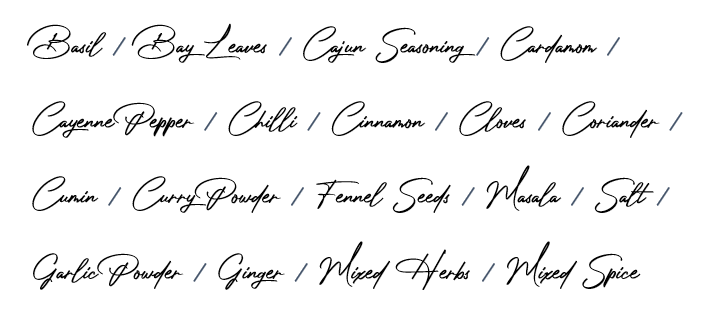 Basil / Bay Leaves / Cajun Seasoning / Cardamom /
Cayenne Pepper / Chilli / Cinnamon / Cloves / Coriander /
Cumin / Curry Powder / Fennel Seeds / Masala / Salt /
Garlic Powder / Ginger / Mixed Herbs / Mixed Spice